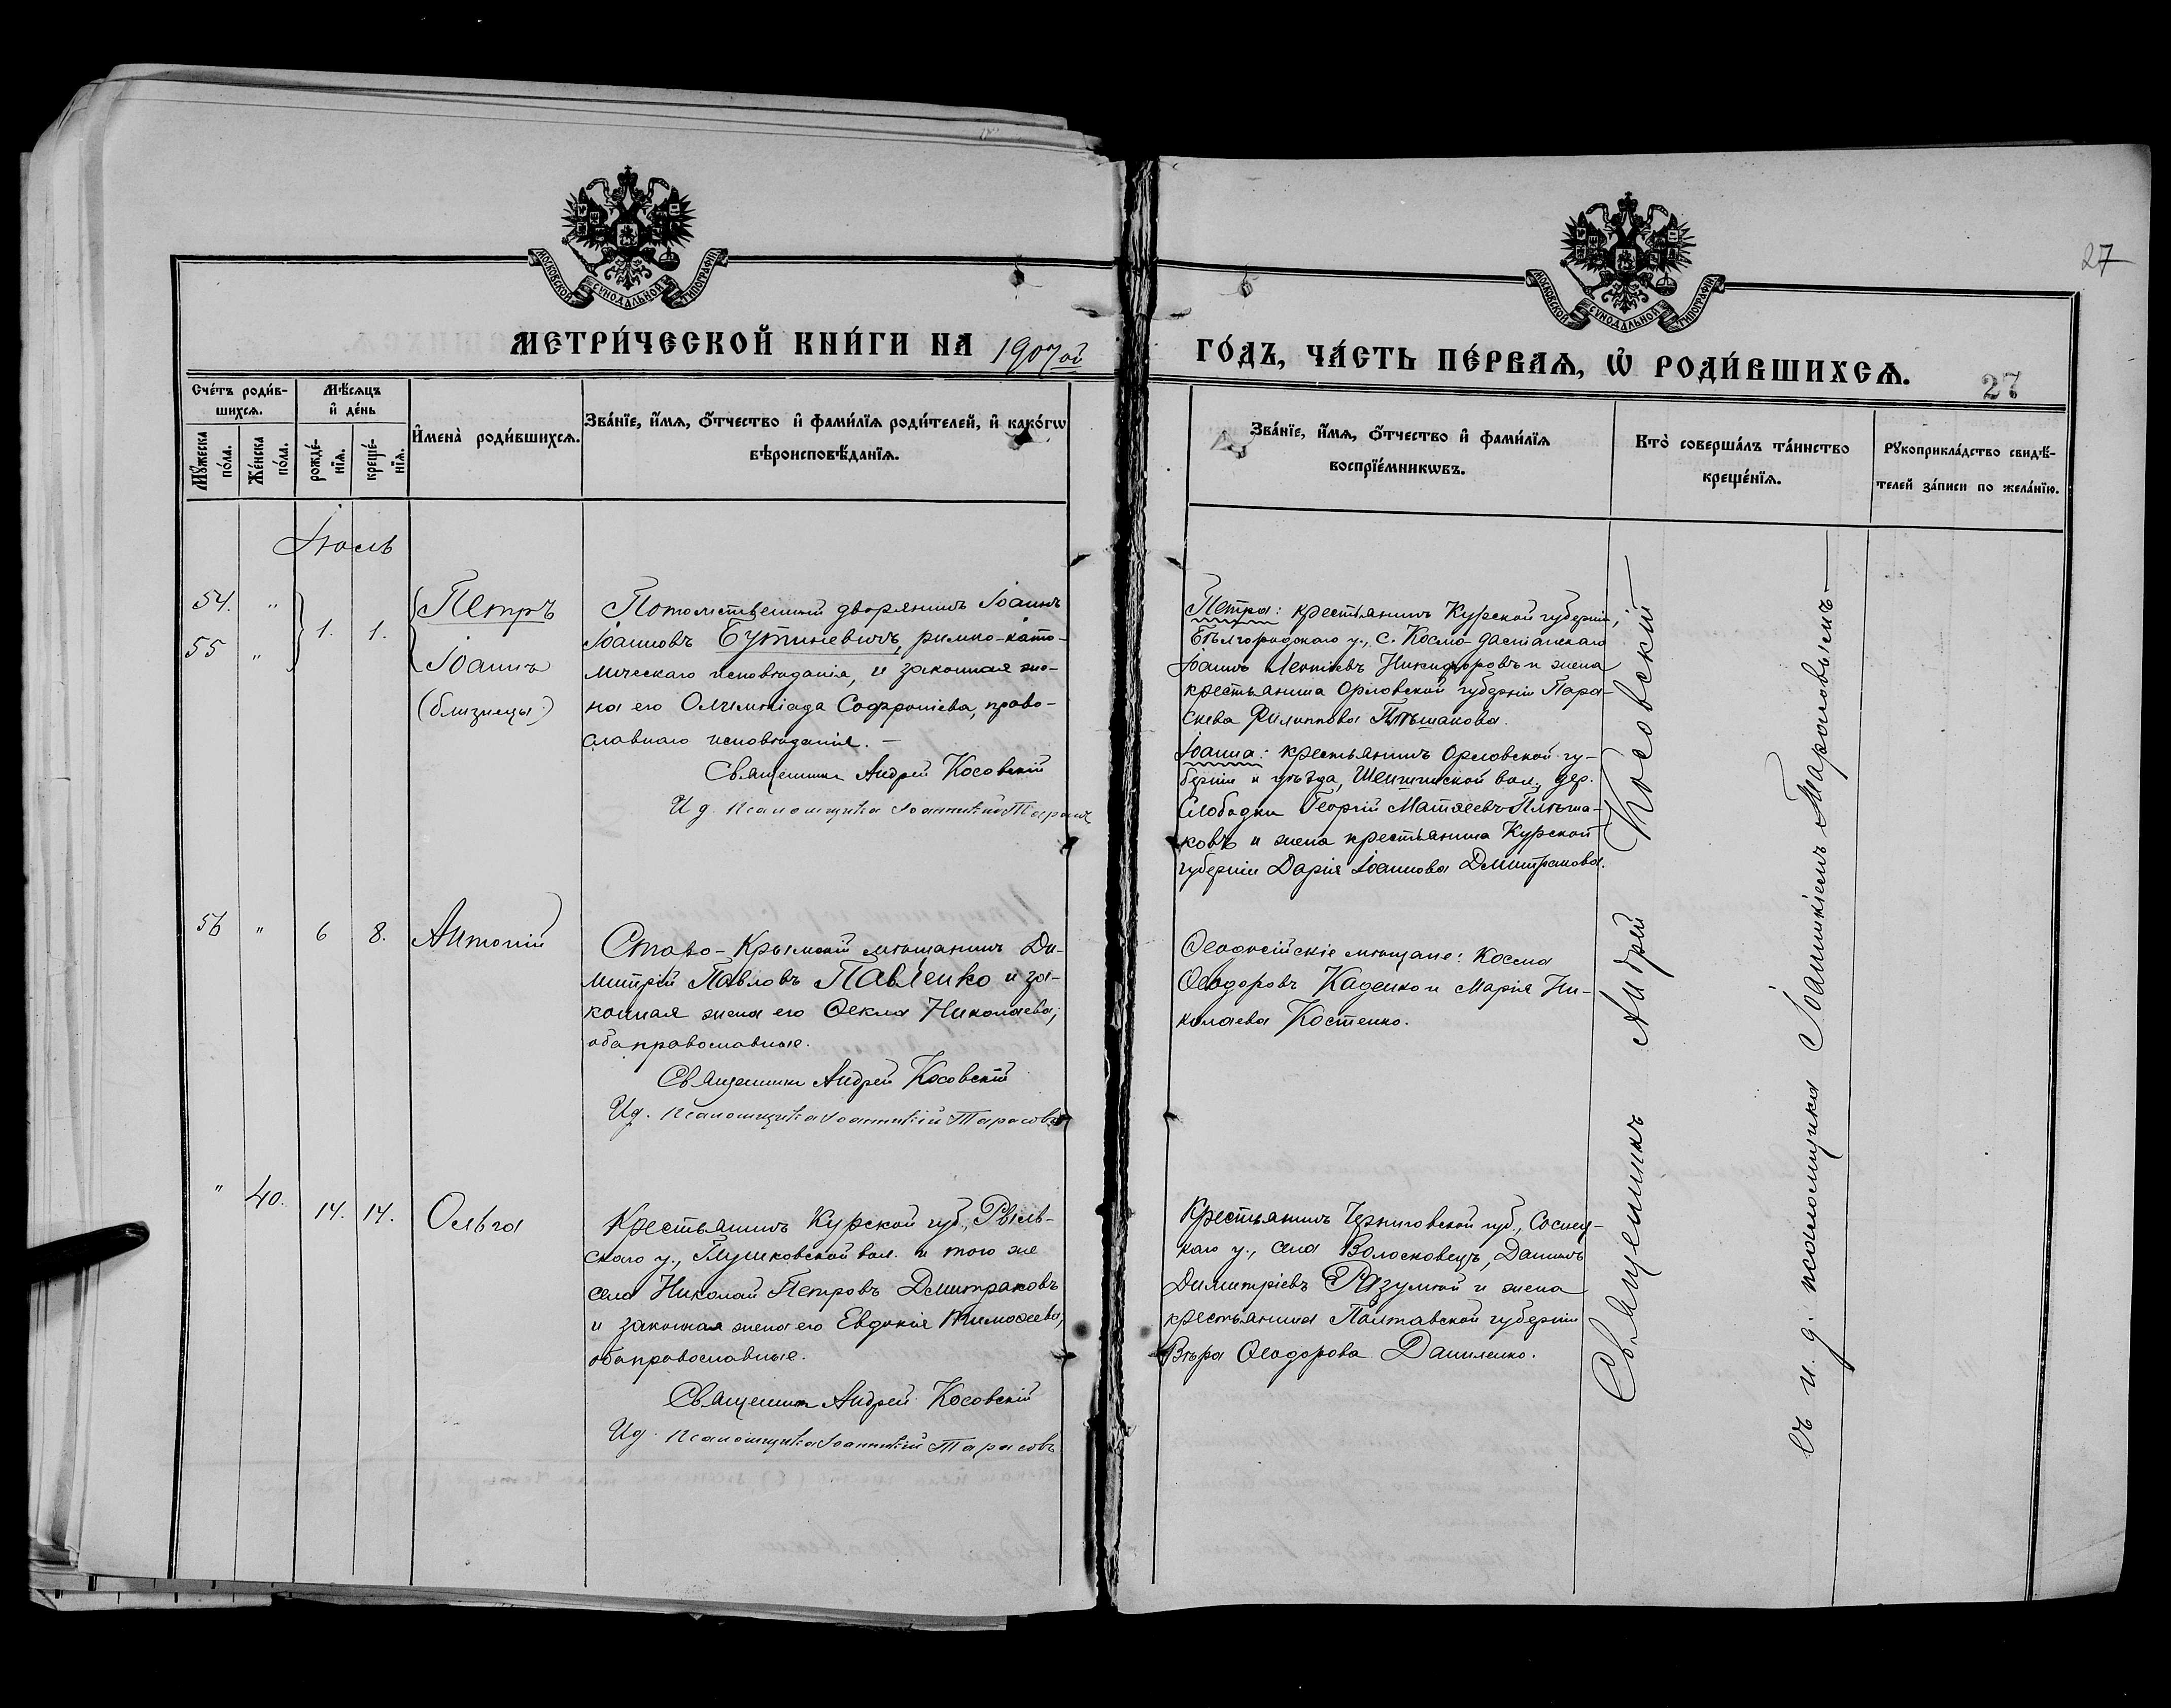 27
МОСКОВСКОЙ СѴНОДАЛЬНОЙ ТИПОГРАФІИ
МОСКОВСКОЙ СѴНОДАЛЬНОЙ ТИПОГРАФІИ
МЕТРИ́ЧЕСКОЙ КНИ́ГИ НА 1907ой
ГО́ДЪ, ЧА́СТЬ ПЕ́РВАѦ, Ѡ҆ РОДИ́ВШИХСѦ.
27
Сче́тъ роди́в-
шихсѧ.
Мꙋжеска по́ла.
Же́нска по́ла.
Мѣ́сѧцъ
и҆ де́нь
рожде́-
нїѧ.
креще́-
нїѧ.
И҆мена̀ роди́вшихсѧ.
Зва́нїе, и҆́мѧ, ѻ҆́тчество и҆ фами́лїѧ роди́телей, и҆ како́гѡ
вѣроисповѣ́данїѧ.
Зва́нїе, и҆́мѧ, ѻ҆́тчество и҆ фами́лїѧ
воспрїе́мникѡвъ.
Кто̀ соверша́лъ та́инство
креще́нїѧ.
Рꙋкоприкла́дство свидѣ́-
телей за́писи по жела́нїю.
Іюль
54. "
55 "
1. 1.
Петръ
Іоаннъ
(близнецы)
Потомственный дворянинъ Іоаннъ
Іоанновъ Бутиневичъ, римско-като-
лическаго исповѣданія, и законная же-
на его Олимпіада Софроніева, право-
славнаго исповѣданія. —
Священникъ Андрей Косовскій
И д. псаломщика Іоанникій Тарас
Петра: крестьянинъ Курской губерніи,
Бѣлгородскаго у., с. Космо-Даміанскаго
Іоаннъ Никифоровъ и жена
крестьянина Орловской губерніи Пара-
скева Филиппова Плѣшакова.
Іоанна: крестьянинъ Орловской гу-
берніи и уѣзда, вол., дер.
Слободки Георгій Матѳеевъ Плѣша-
ковъ и жена крестьянина Курской
губерніи Дарія Іоаннова Дмитракова.
56 " 6 8. Антоній
Старо-Крымскій мѣщанинъ Ди-
митрій Павловъ Павленко и за-
конная жена его Ѳекла Николаева;
оба православные.
Священникъ Андрей Косовскій
Ид. псаломщика Іоанникій Тарасовъ
Ѳеодосійскіе мѣщане: Косма
Ѳеодоровъ Каденко и Марія Ни-
колаева Костенко.
" 40. 14. 14. Ольга
Крестьянинъ Курской губ., Рыль-
скаго у., Глушковской вол. и того же
села Николай Петровъ Дмитраковъ
и законная жена его Евдокія Тимоѳеева,
оба православные.
Священникъ Андрей Косовскій
Ид. псаломщика Іоанникій Тарасовъ
Крестьянинъ Черниговской губ., Сосниц-
каго у., села Волосковецъ, Даніилъ
Димитріевъ Разумный и жена
крестьянина Полтавской губерніи
Вѣра Ѳеодорова Даниленко.
Священникъ Андрей Косовскій
съ и. д. псаломщика Іоанникіемъ